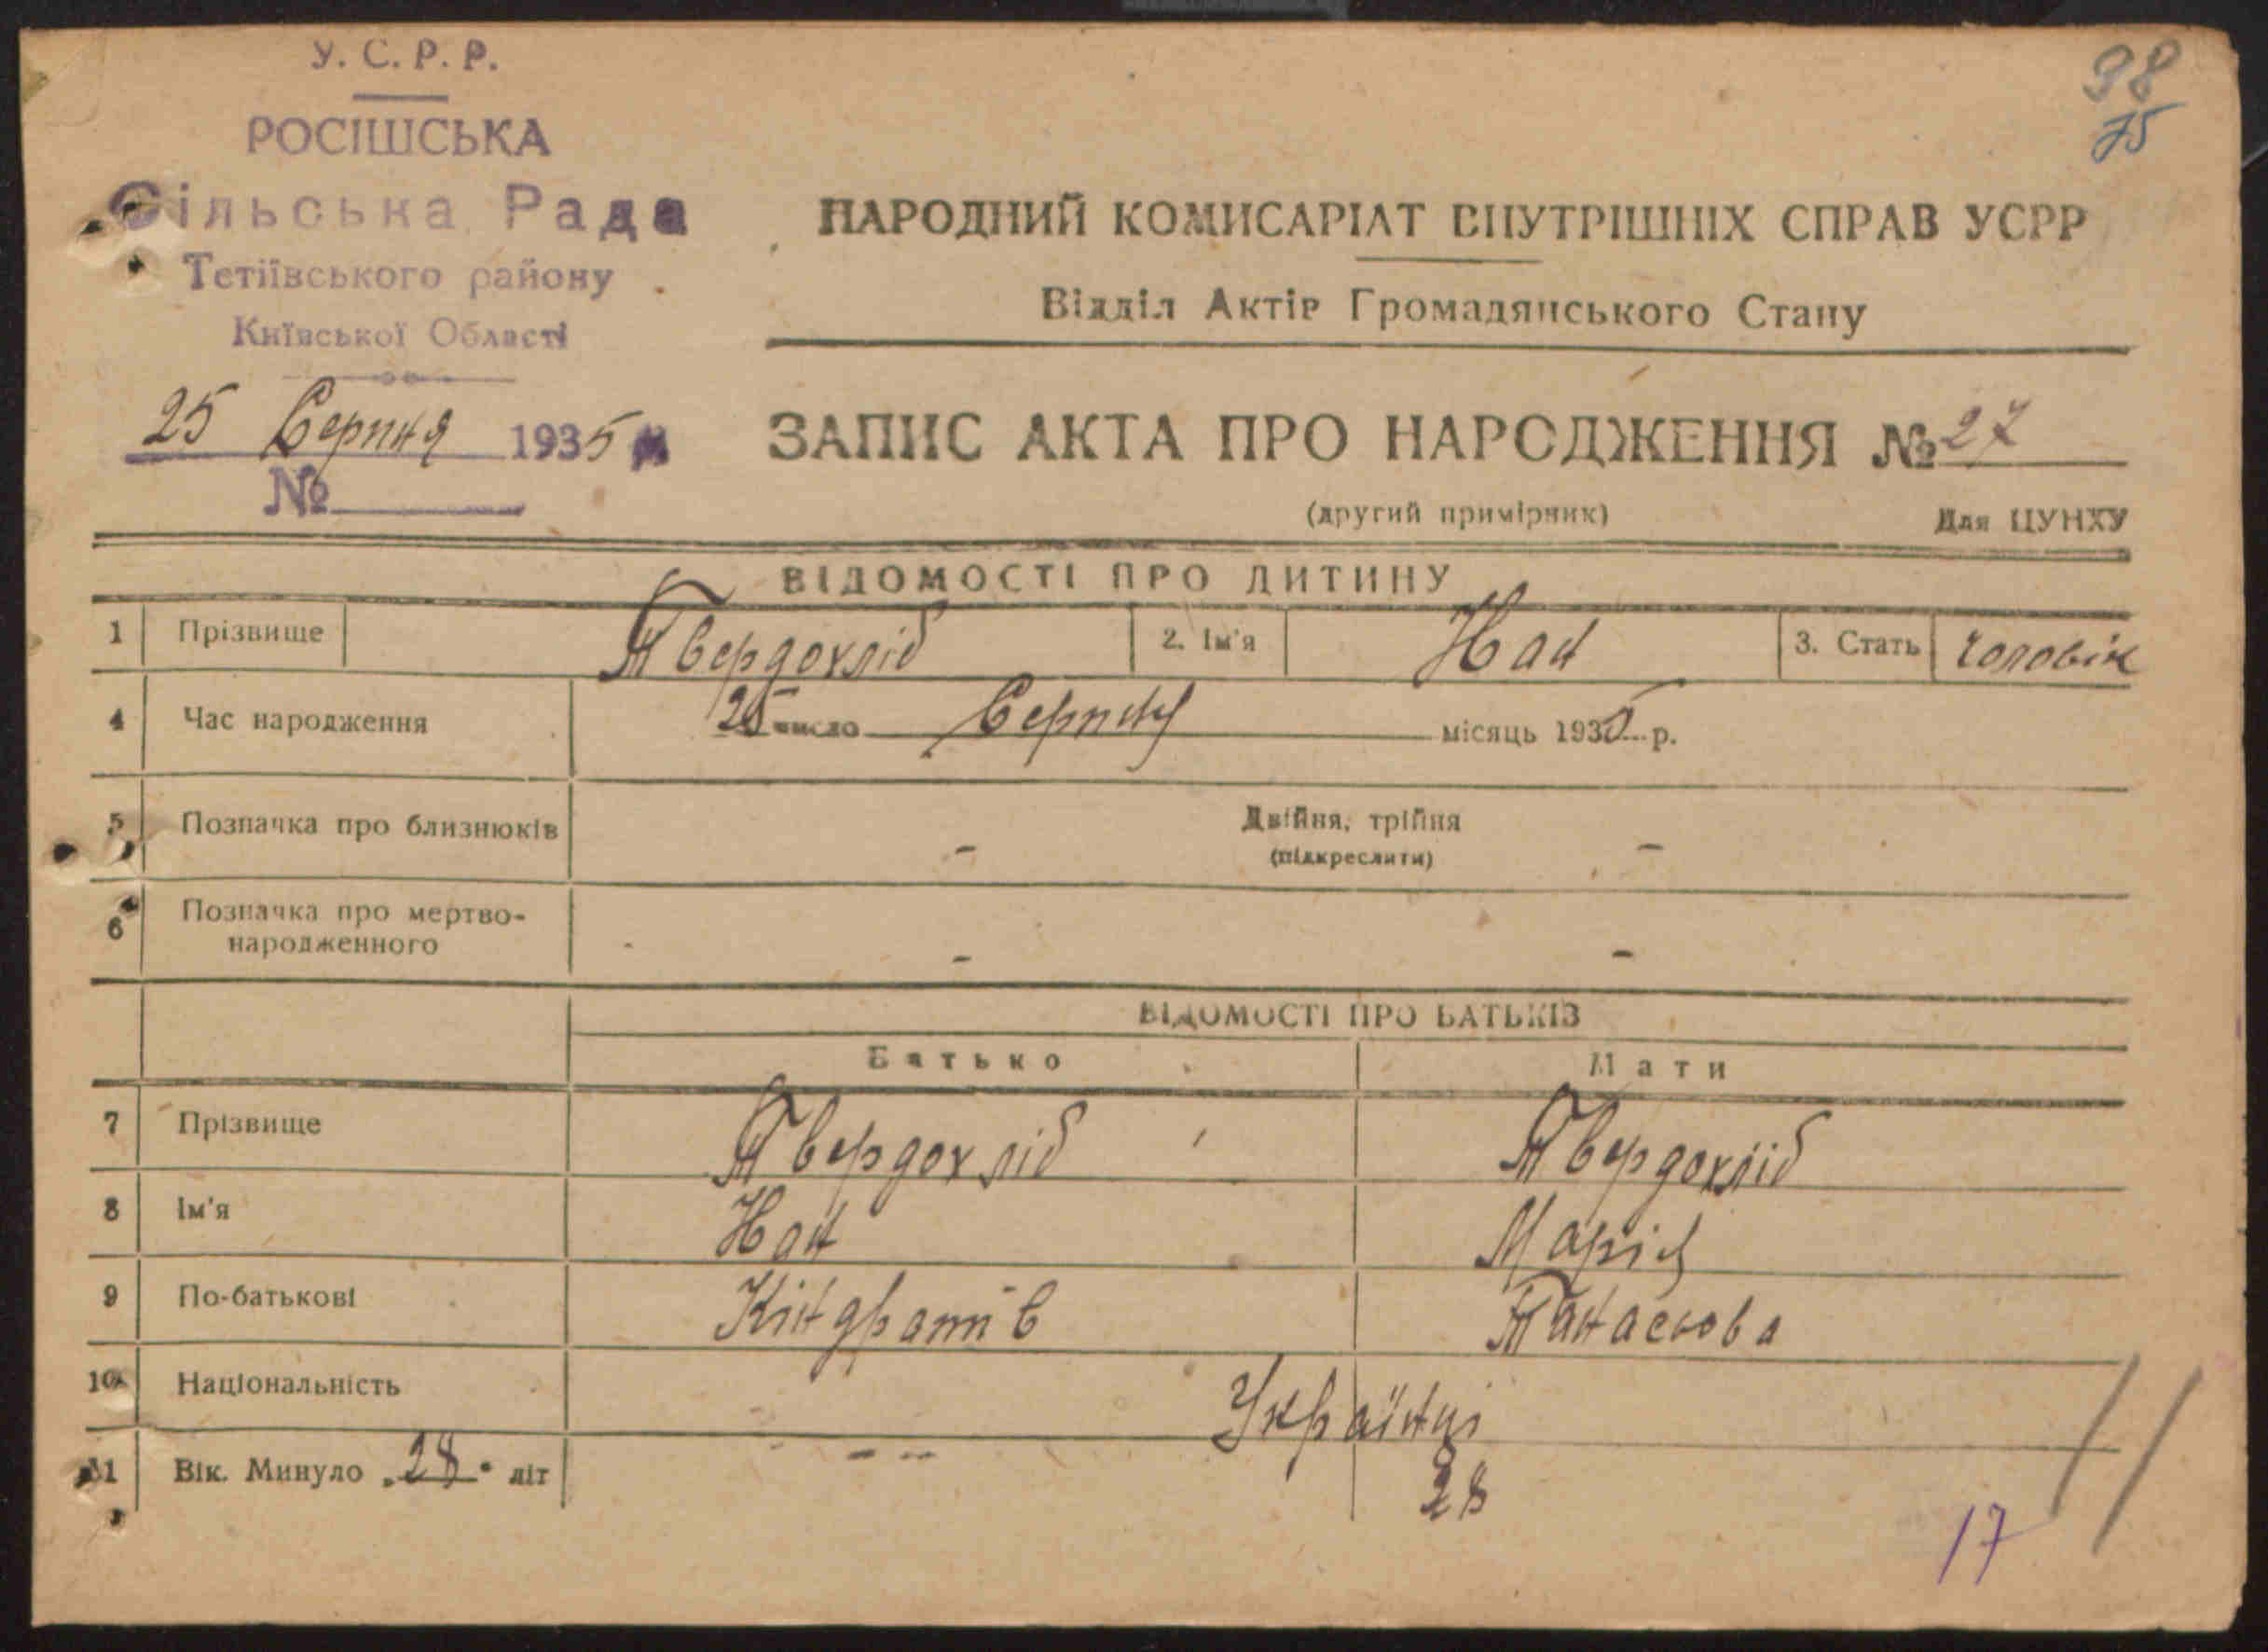 98
75
У. С. Р. Р.
РОСІШСЬКА
Сільська Рада
Тетіївського району
Київської Області
25 Серпня 1935
№
НАРОДНИЙ КОМИСАРІАТ ВНУТРІШНІХ СПРАВ УСРР
Відділ Актів Громадянського Стану
ЗАПИС АКТА ПРО НАРОДЖЕННЯ № 27
(другий примірник) Для ЦУНХУ
ВІДОМОСТІ ПРО ДИТИНУ
1 Прізвище Твердохліб 2. Ім'я Нан 3. Стать чоловік
4 Час народження 25 число Серпня місяць 1935 р.
5 Позначка про близнюків - Двійня, трійня -
(підкреслити)
6 Позначка про мертво-
народженного - -
ВІДОМОСТІ ПРО БАТЬКІВ
Батько Мати
7 Прізвище Твердохліб Твердохліб
8 Ім'я Нан Марія
9 По-батькові Кіндратів Танасьова
10 Національність Українці
11 Вік. Минуло "28" літ - - - 28
17